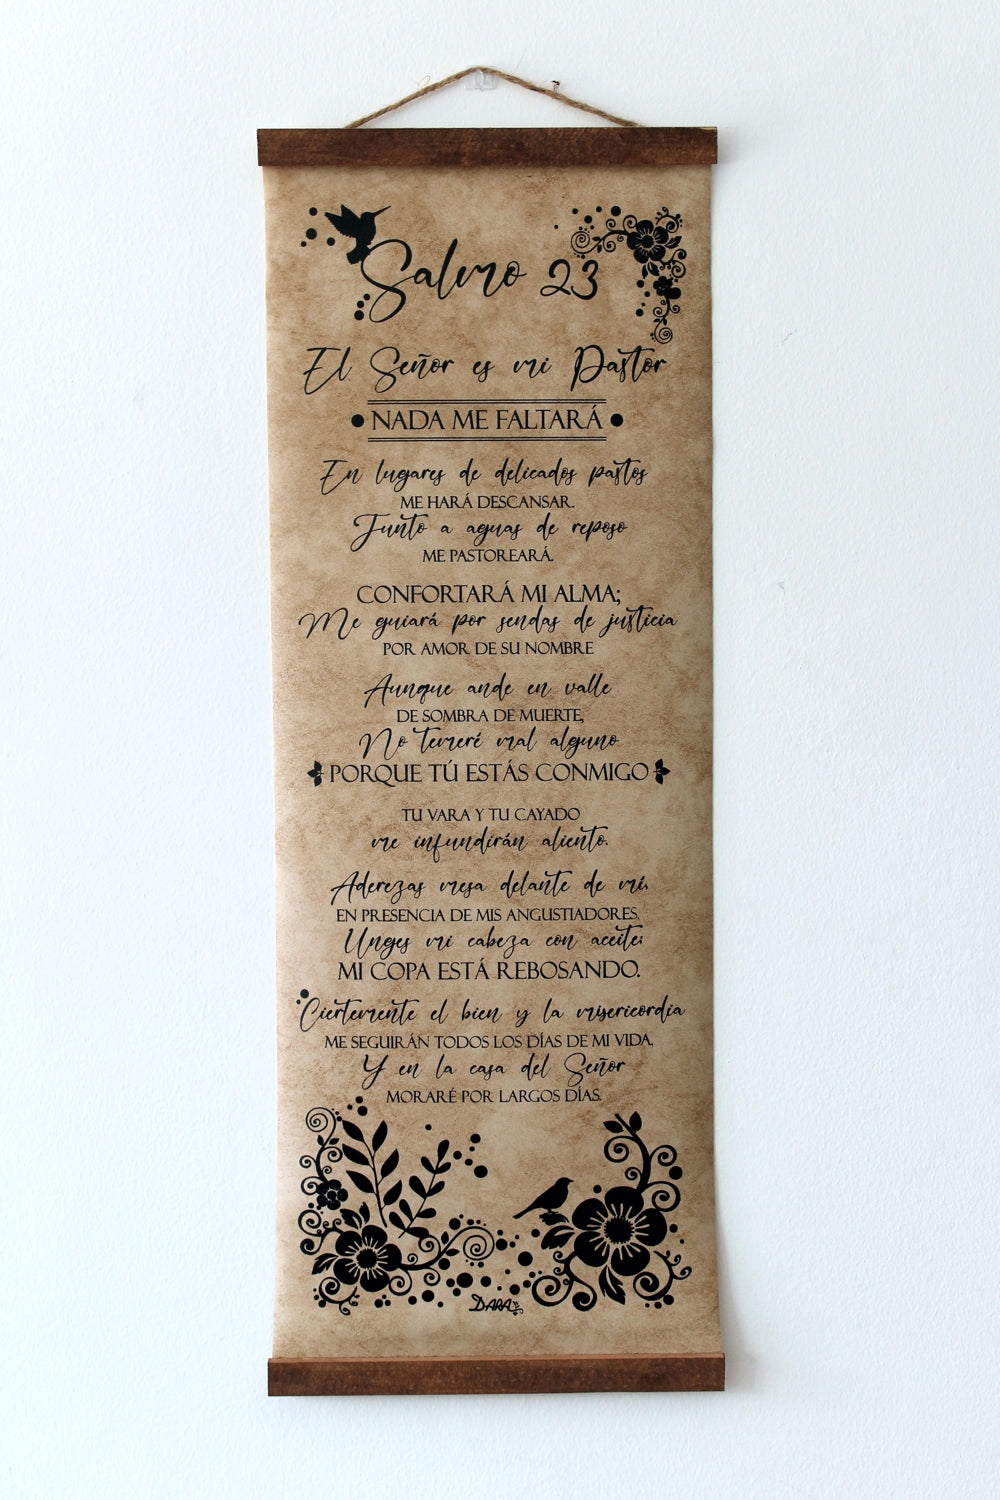 Salmo 23
El Señor es mi Pastor
NADA ME FALTARÁ
En lugares de delicados pastos
ME HARÁ DESCANSAR.
Junto a aguas de reposo
ME PASTOREARÁ.
CONFORTARÁ MI ALMA;
Me guiará por sendas de justicia
POR AMOR DE SU NOMBRE
Aunque ande en valle
DE SOMBRA DE MUERTE,
No temeré mal alguno
PORQUE TÚ ESTÁS CONMIGO
TU VARA Y TU CAYADO
me infundirán aliento.
Aderezas mesa delante de mí,
EN PRESENCIA DE MIS ANGUSTIADORES.
Unges mi cabeza con aceite;
MI COPA ESTÁ REBOSANDO.
Ciertemente el bien y la misericordia
ME SEGUIRÁN TODOS LOS DÍAS DE MI VIDA,
Y en la casa del Señor
MORARÉ POR LARGOS DÍAS.
DARA